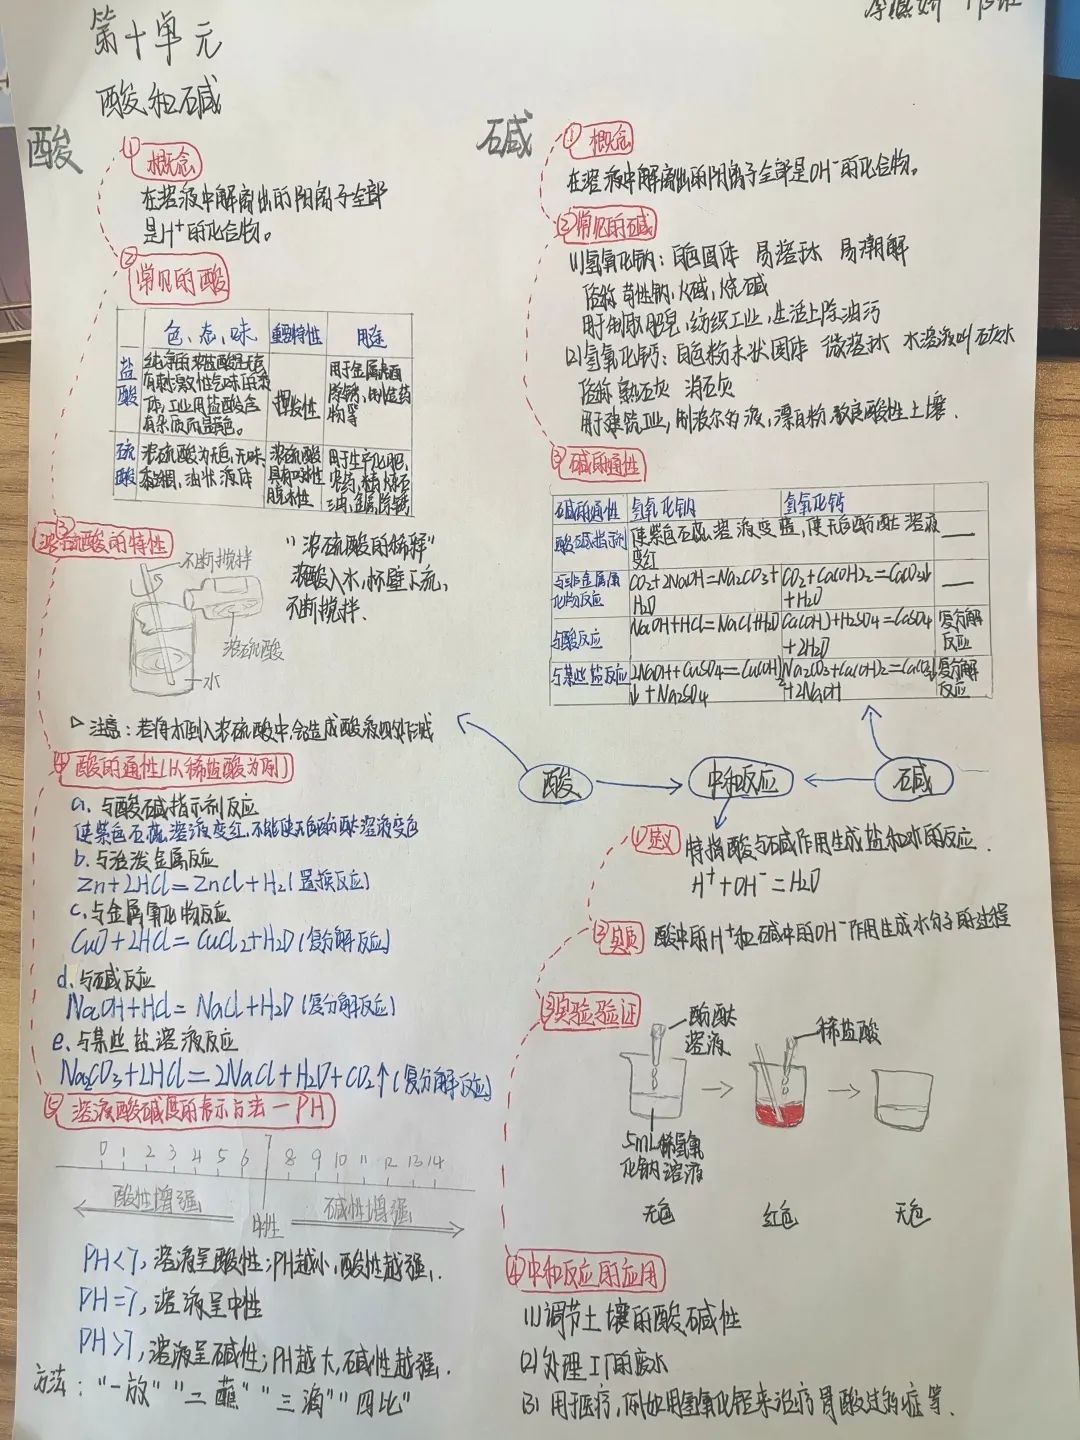 第十单元
酸和碱
酸
① 概念
在溶液中解离出的阳离子全部
是H⁺的化合物。
② 常见的酸
色、态、味 重要特性 用途
盐酸
纯净的浓盐酸是无色
有刺激性气味的液
体,工业用盐酸含
有杂质而呈黄色。
挥发性
用于金属表面
除锈,制造药
物等
硫酸
浓硫酸为无色,无味
黏稠,油状液体
浓硫酸
具有吸水性
脱水性
用于生产化肥,
农药,
油,金属除锈
③ 浓硫酸的特性
不断搅拌
浓硫酸
水
"浓硫酸的稀释"
酸入水,杯壁下流,
不断搅拌.
▷注意:若将水倒入浓硫酸中,会造成酸液四处飞溅
④ 酸的通性(以稀盐酸为例)
a. 与酸碱指示剂反应
使紫色石蕊溶液变红,不能使无色酚酞溶液变色
b. 与活泼金属反应
Zn+2HCl=ZnCl+H₂(置换反应)
c. 与金属氧化物反应
CuO+2HCl=CuCl₂+H₂O(复分解反应)
d. 与碱反应
NaOH+HCl=NaCl+H₂O(复分解反应)
e. 与某些盐溶液反应
Na₂CO₃+2HCl=2NaCl+H₂O+CO₂↑(复分解反应)
⑤ 溶液酸碱度的表示方法—PH
0 1 2 3 4 5 6 7 8 9 10 11 12 13 14
酸性增强 中性 碱性增强
PH<7,溶液呈酸性;PH越小,酸性越强.
PH=7,溶液呈中性
PH>7,溶液呈碱性;PH越大,碱性越强.
方法:"一放""二蘸""三滴""四比"
碱
① 概念
在溶液中解离出的阴离子全部是OH⁻的化合物。
② 常见的碱
(1)氢氧化钠:白色固体 易溶于水 易潮解
俗称 苛性钠,火碱,烧碱
用于制取肥皂,纺织工业,生活上除油污
(2)氢氧化钙:白色粉末状固体 微溶于水 水溶液叫石灰水
俗称 熟石灰 消石灰
用于建筑工业,制波尔多液,漂白粉,改良酸性土壤.
③ 碱的通性
碱的通性 氢氧化钠 氢氧化钙
酸碱指示剂 使紫色石蕊溶液变蓝,使无色酚酞溶液变红 —
与非金属氧化物反应 CO₂+2NaOH=Na₂CO₃+H₂O CO₂+Ca(OH)₂=CaCO₃↓+H₂O —
与酸反应 NaOH+HCl=NaCl+H₂O Ca(OH)+H₂SO₄=CaSO₄+2H₂O 复分解反应
与某些盐反应 2NaOH+CuSO₄=Cu(OH)₂↓+Na₂SO₄ Na₂CO₃+Ca(OH)₂=CaCO₃↓+2NaOH 复分解反应
酸 中和反应 碱
① 定义
特指酸与碱作用生成盐和水的反应.
H⁺+OH⁻=H₂O
② 实质
酸中的H⁺和碱中的OH⁻作用生成水分子的过程
③ 实验验证
酚酞溶液
稀盐酸
5mL稀氢氧
化钠溶液
无色 红色 无色
④ 中和反应的应用
(1)调节土壤的酸碱性
(2)处理工厂的废水
(3) 用于医疗,例如用氢氧化铝来治疗胃酸过多症等.